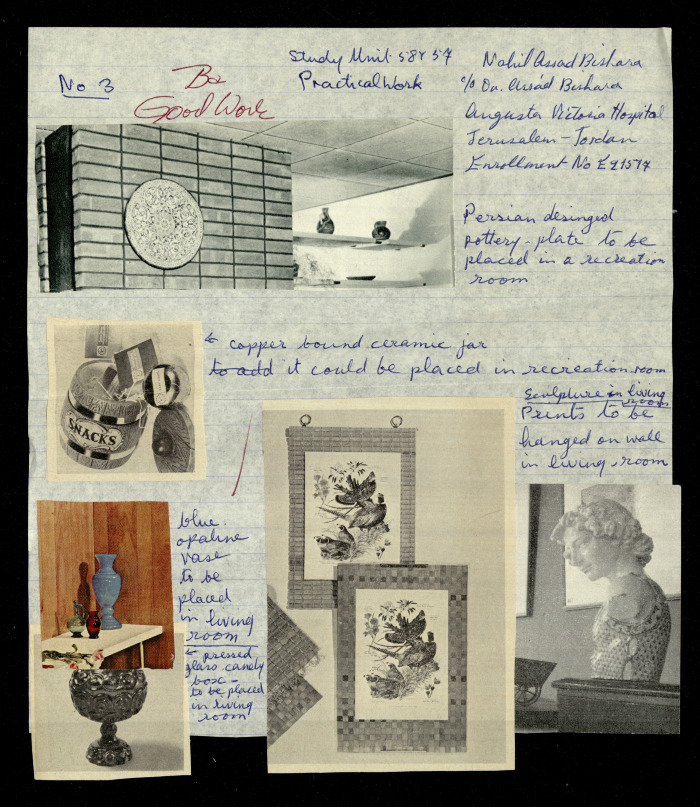 No 3
B+
Good Work
Study Unit 58 & 59
Practical Work
Nahil Assad Bishara
c/o Dr. Assad Bishara
Augusta Victoria Hospital
Jerusalem - Jordan
Enrollment No E21574
Persian desinged
pottery - plate to be
placed in a recreation
room
← copper bound ceramic jar
to add it could be placed in recreation room
SNACKS
Sculpture in living
room
Prints to be
hanged on wall
in living room
blue
opaline
vase
to be
placed
in living
room
← pressed
glass candy
box -
to be placed
in living
room